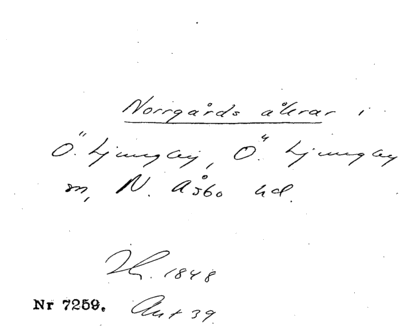 Norrgårds åkrar i
Ö. Ljungby, Ö. Ljungby
sn, N. Åsbo hd.
1848
Nr 7259. Akt 39